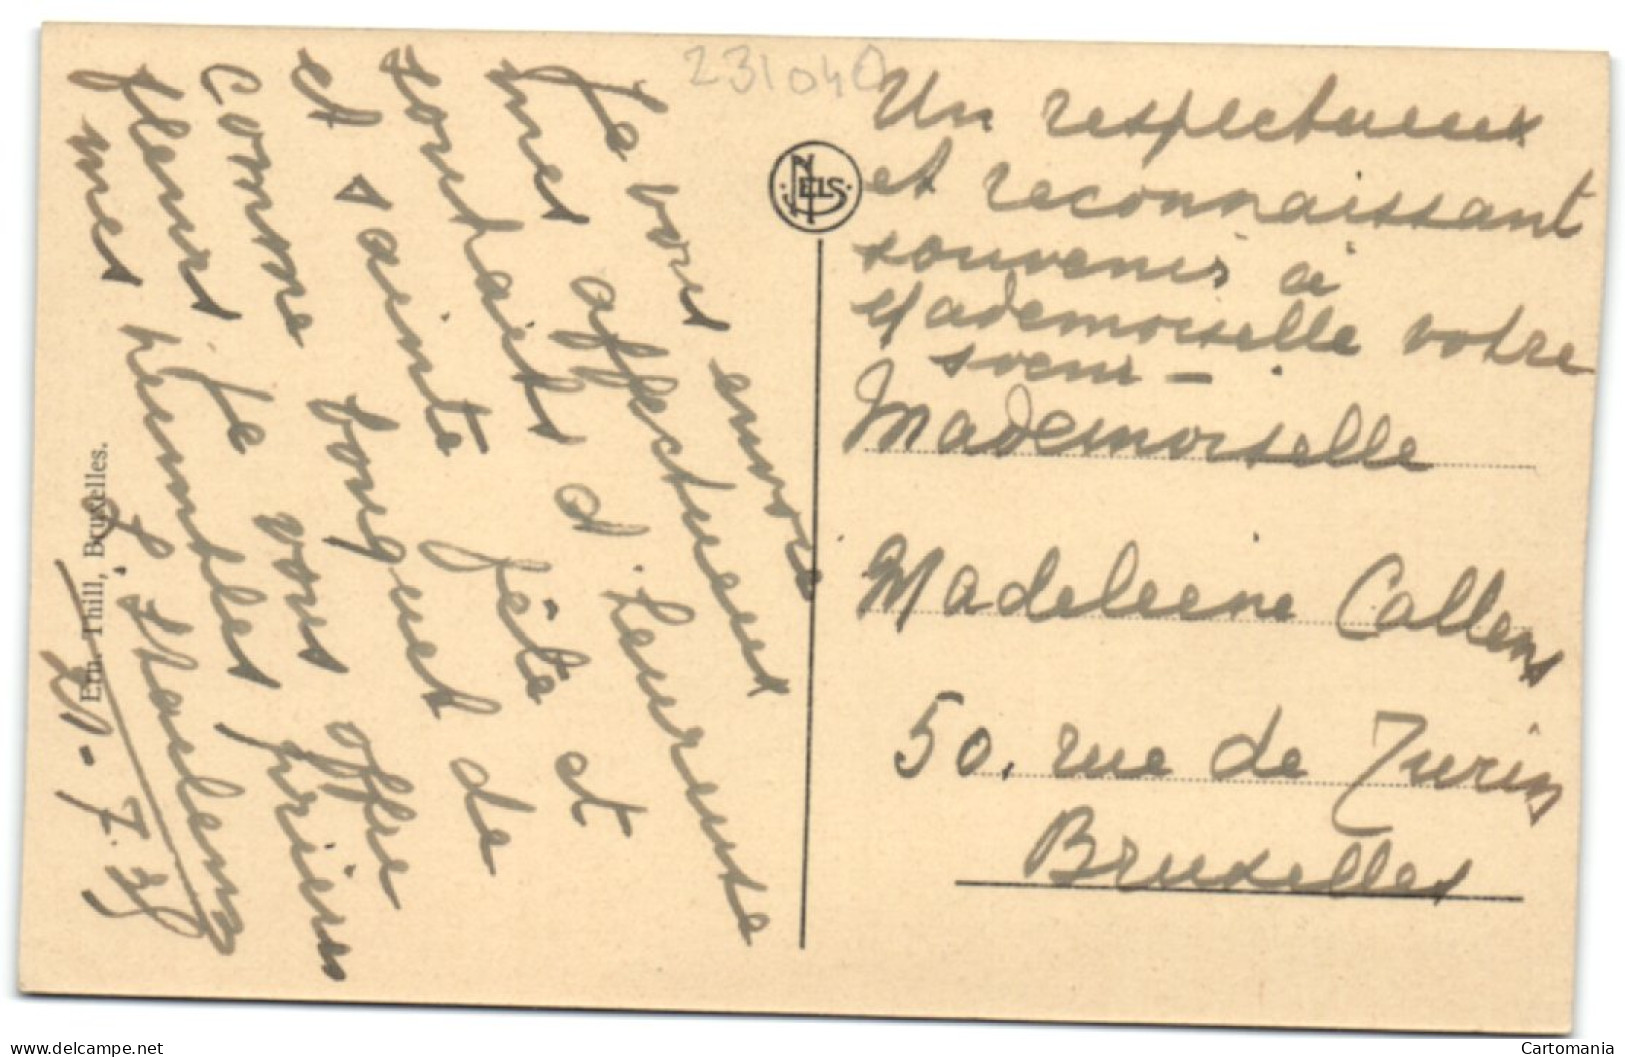 Je vous envoie
mes affectueux
souhaits d'heureuse
et sainte fête et
comme bouquet de
fleurs je vous offre
mes humbles prières
20-7.38
231040
NELS
Un respectueux
et reconnaissant
souvenir à
Mademoiselle votre
soeur -
Mademoiselle
Madeleine Callens
50, rue de Turin
Bruxelles
Ern. Thill, Bruxelles.
www.delcampe.net
Cartomania